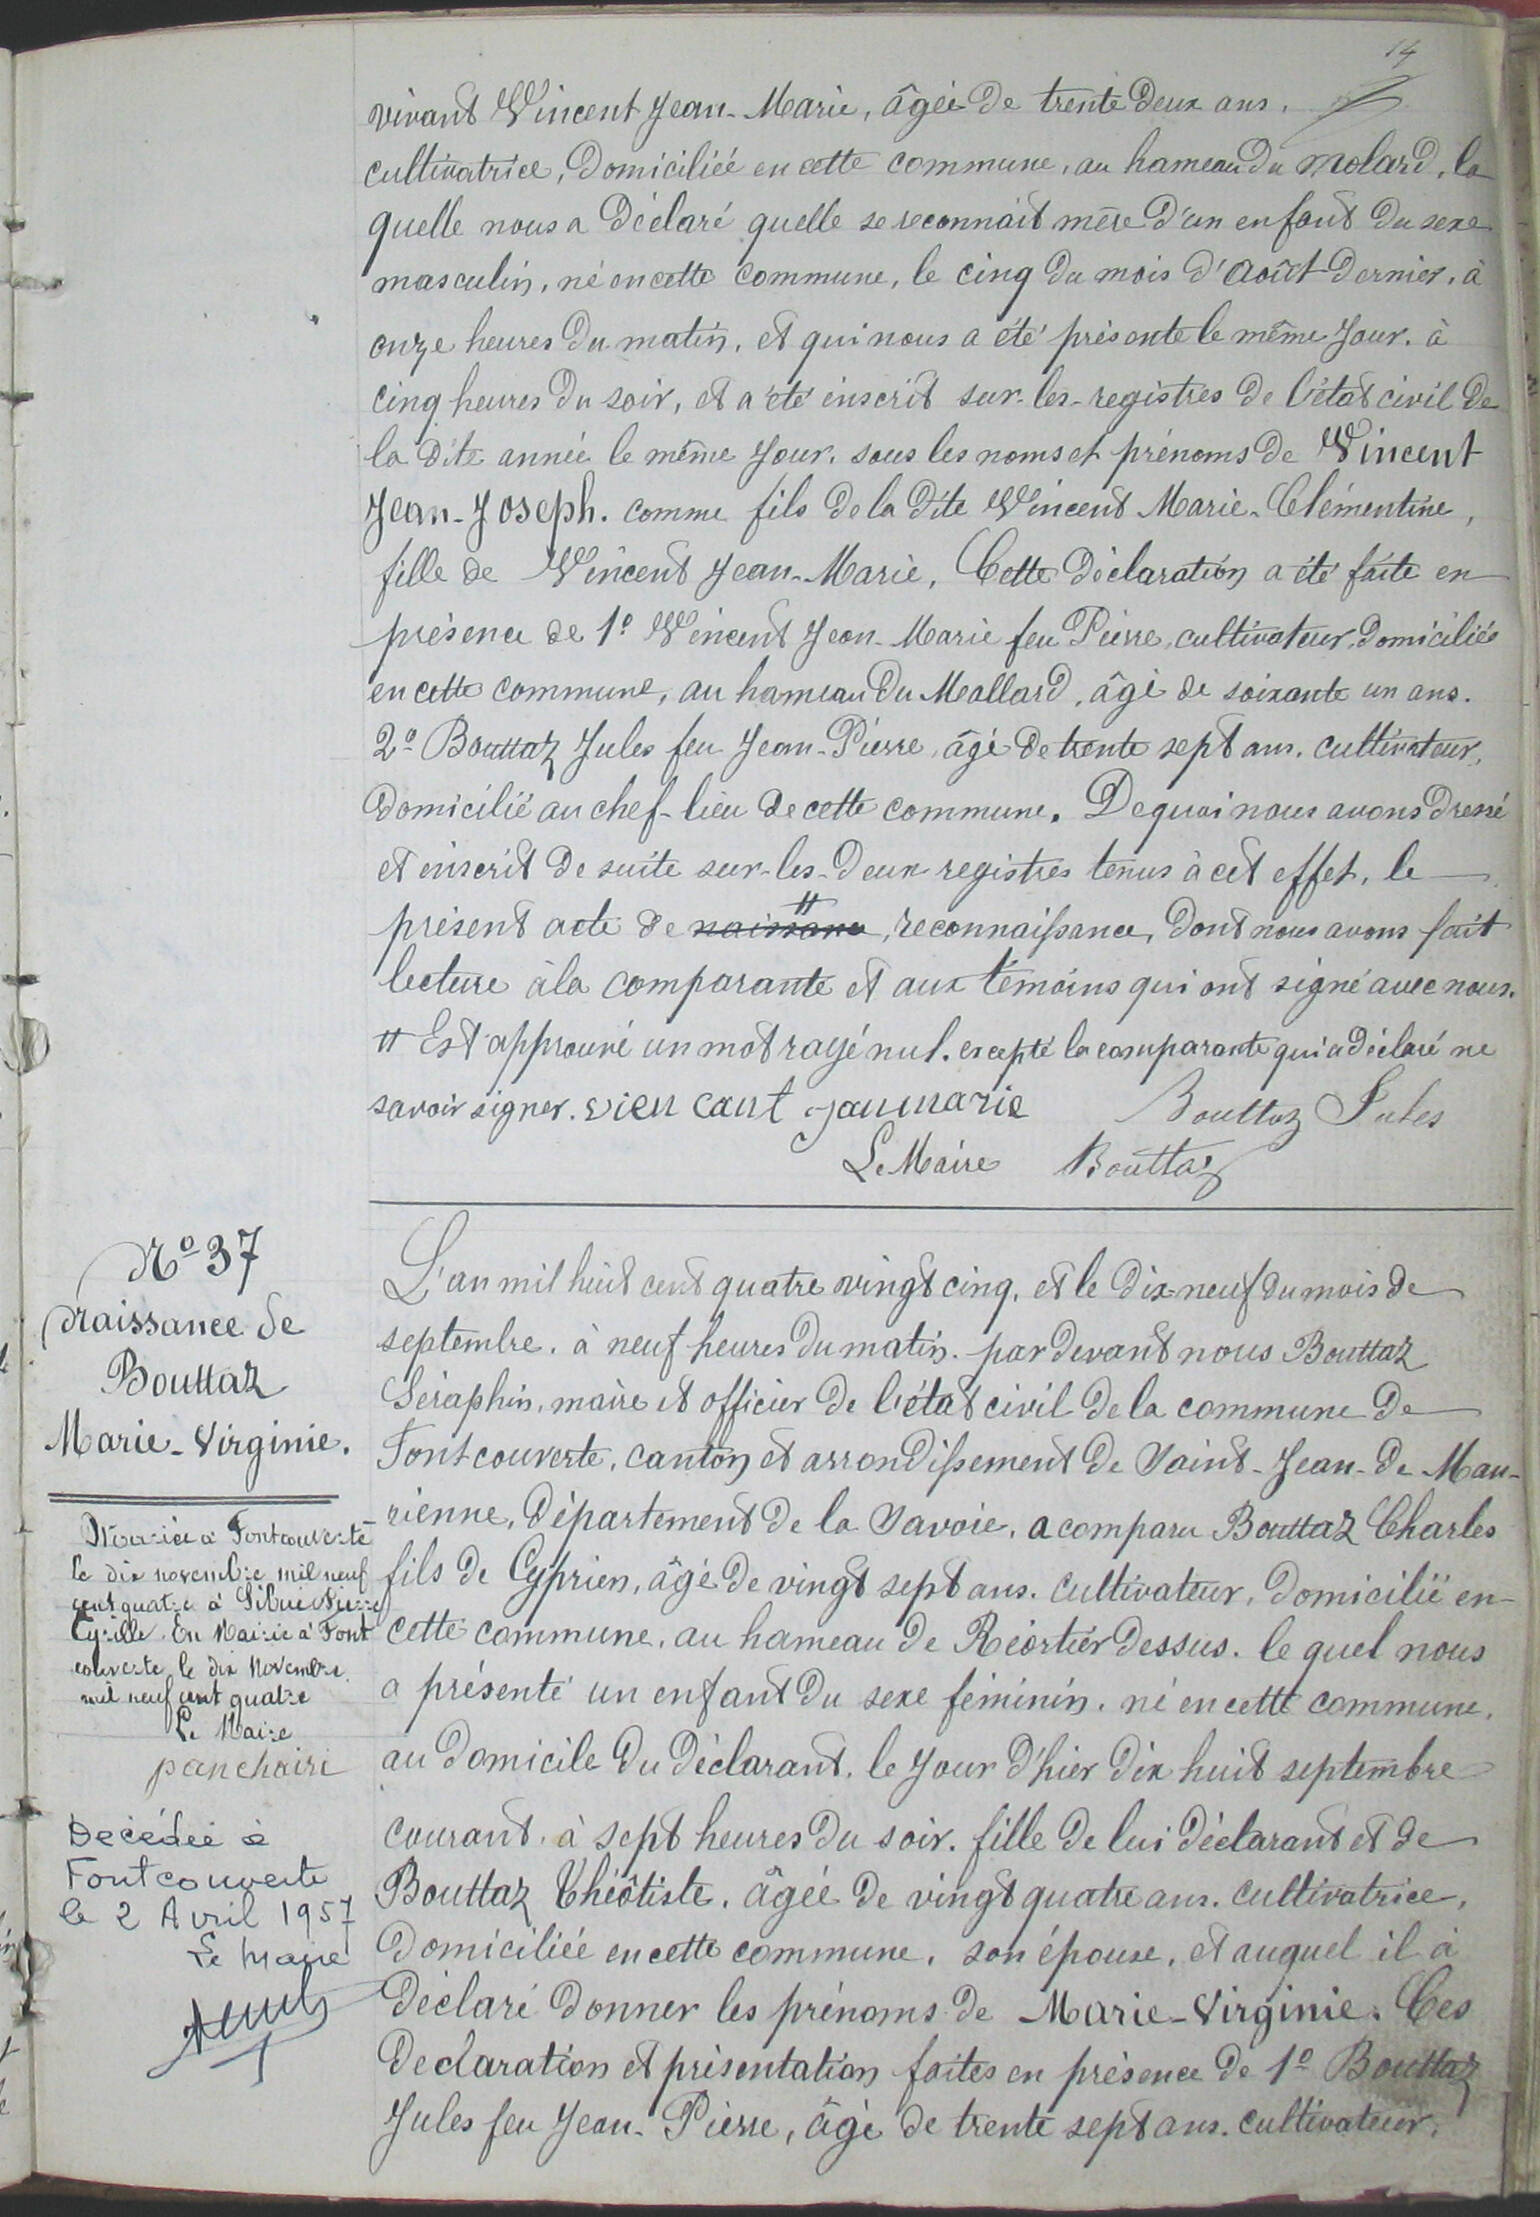 14
vivant Vincent Jean-Marie, âgée de trente deux ans.
cultivatrice, domiciliée en cette commune, au hameau du Molard, la
quelle nous a déclaré quelle se reconnait mère d'un enfant du sexe
masculin, né en cette commune, le cinq du mois d'Août dernier, à
onze heures du matin, et qui nous a été présenté le même jour, à
cinq heures du soir, et a été inscrit sur-les-registres de l'état civil de
la dite année le même jour, sous les noms et prénoms de Vincent
Jean-Joseph. comme fils de la dite Vincent Marie-Clémentine,
fille de Vincent Jean-Marie, Cette déclaration a été faite en
présence de 1º Vincent Jean-Marie feu Pierre, cultivateur, domiciliée
en cette commune, au hameau du Mollard, âgé de soixante un ans.
2º Bouttaz Jules feu Jean-Pierre, âgé de trente sept ans. cultivateur,
domicilié au chef-lieu de cette commune. De quoi nous avons dressé
et inscrit de suite sur-les-deux registres tenus à cet effet, le
présent acte de naissance, reconnaissance, dont nous avons fait
lecture à la comparante et aux témoins qui ont signé avec nous.
# Est approuvé un mot rayé nul. excepté la comparante qui a déclaré ne
savoir signer. vien cant janmarie Bouttaz Jules
Le Maire Bouttaz
Nº 37
Naissance de
Bouttaz
Marie-Virginie.
Mariée à Fontcouverte
le dix novembre mil neuf
cent quatre à Sibué Pierre
Cyrille. En Mairie à Font
couverte le dix Novembre
mil neuf cent quatre
Le Maire
panchairi
Décédée à
Fontcouverte
le 2 Avril 1957
Le Maire
L'an mil huit cent quatre vingt cinq, et le dix-neuf du mois de
septembre. à neuf heures du matin. par devant nous Bouttaz
Séraphin, maire et officier de l'état civil de la commune de
Fontcouverte, canton et arrondissement de Saint-Jean-de Mau-
rienne, département de la Savoie, a comparu Bouttaz Charles
fils de Cyprien, âgé de vingt sept ans. cultivateur, domicilié en
cette commune, au hameau de Riortier dessus. le quel nous
a présenté un enfant du sexe féminin. né en cette commune,
au domicile du déclarant. le jour d'hier dix huit septembre
courant, à sept heures du soir. fille de lui déclarant et de
Bouttaz Théôtiste. âgée de vingt quatre ans. cultivatrice,
domiciliée en cette commune, son épouse, et auquel il à
déclaré donner les prénoms de Marie-Virginie. Ces
déclaration et présentation faites en présence de 1º Bouttaz
Jules feu Jean-Pierre, âgé de trente sept ans. cultivateur,